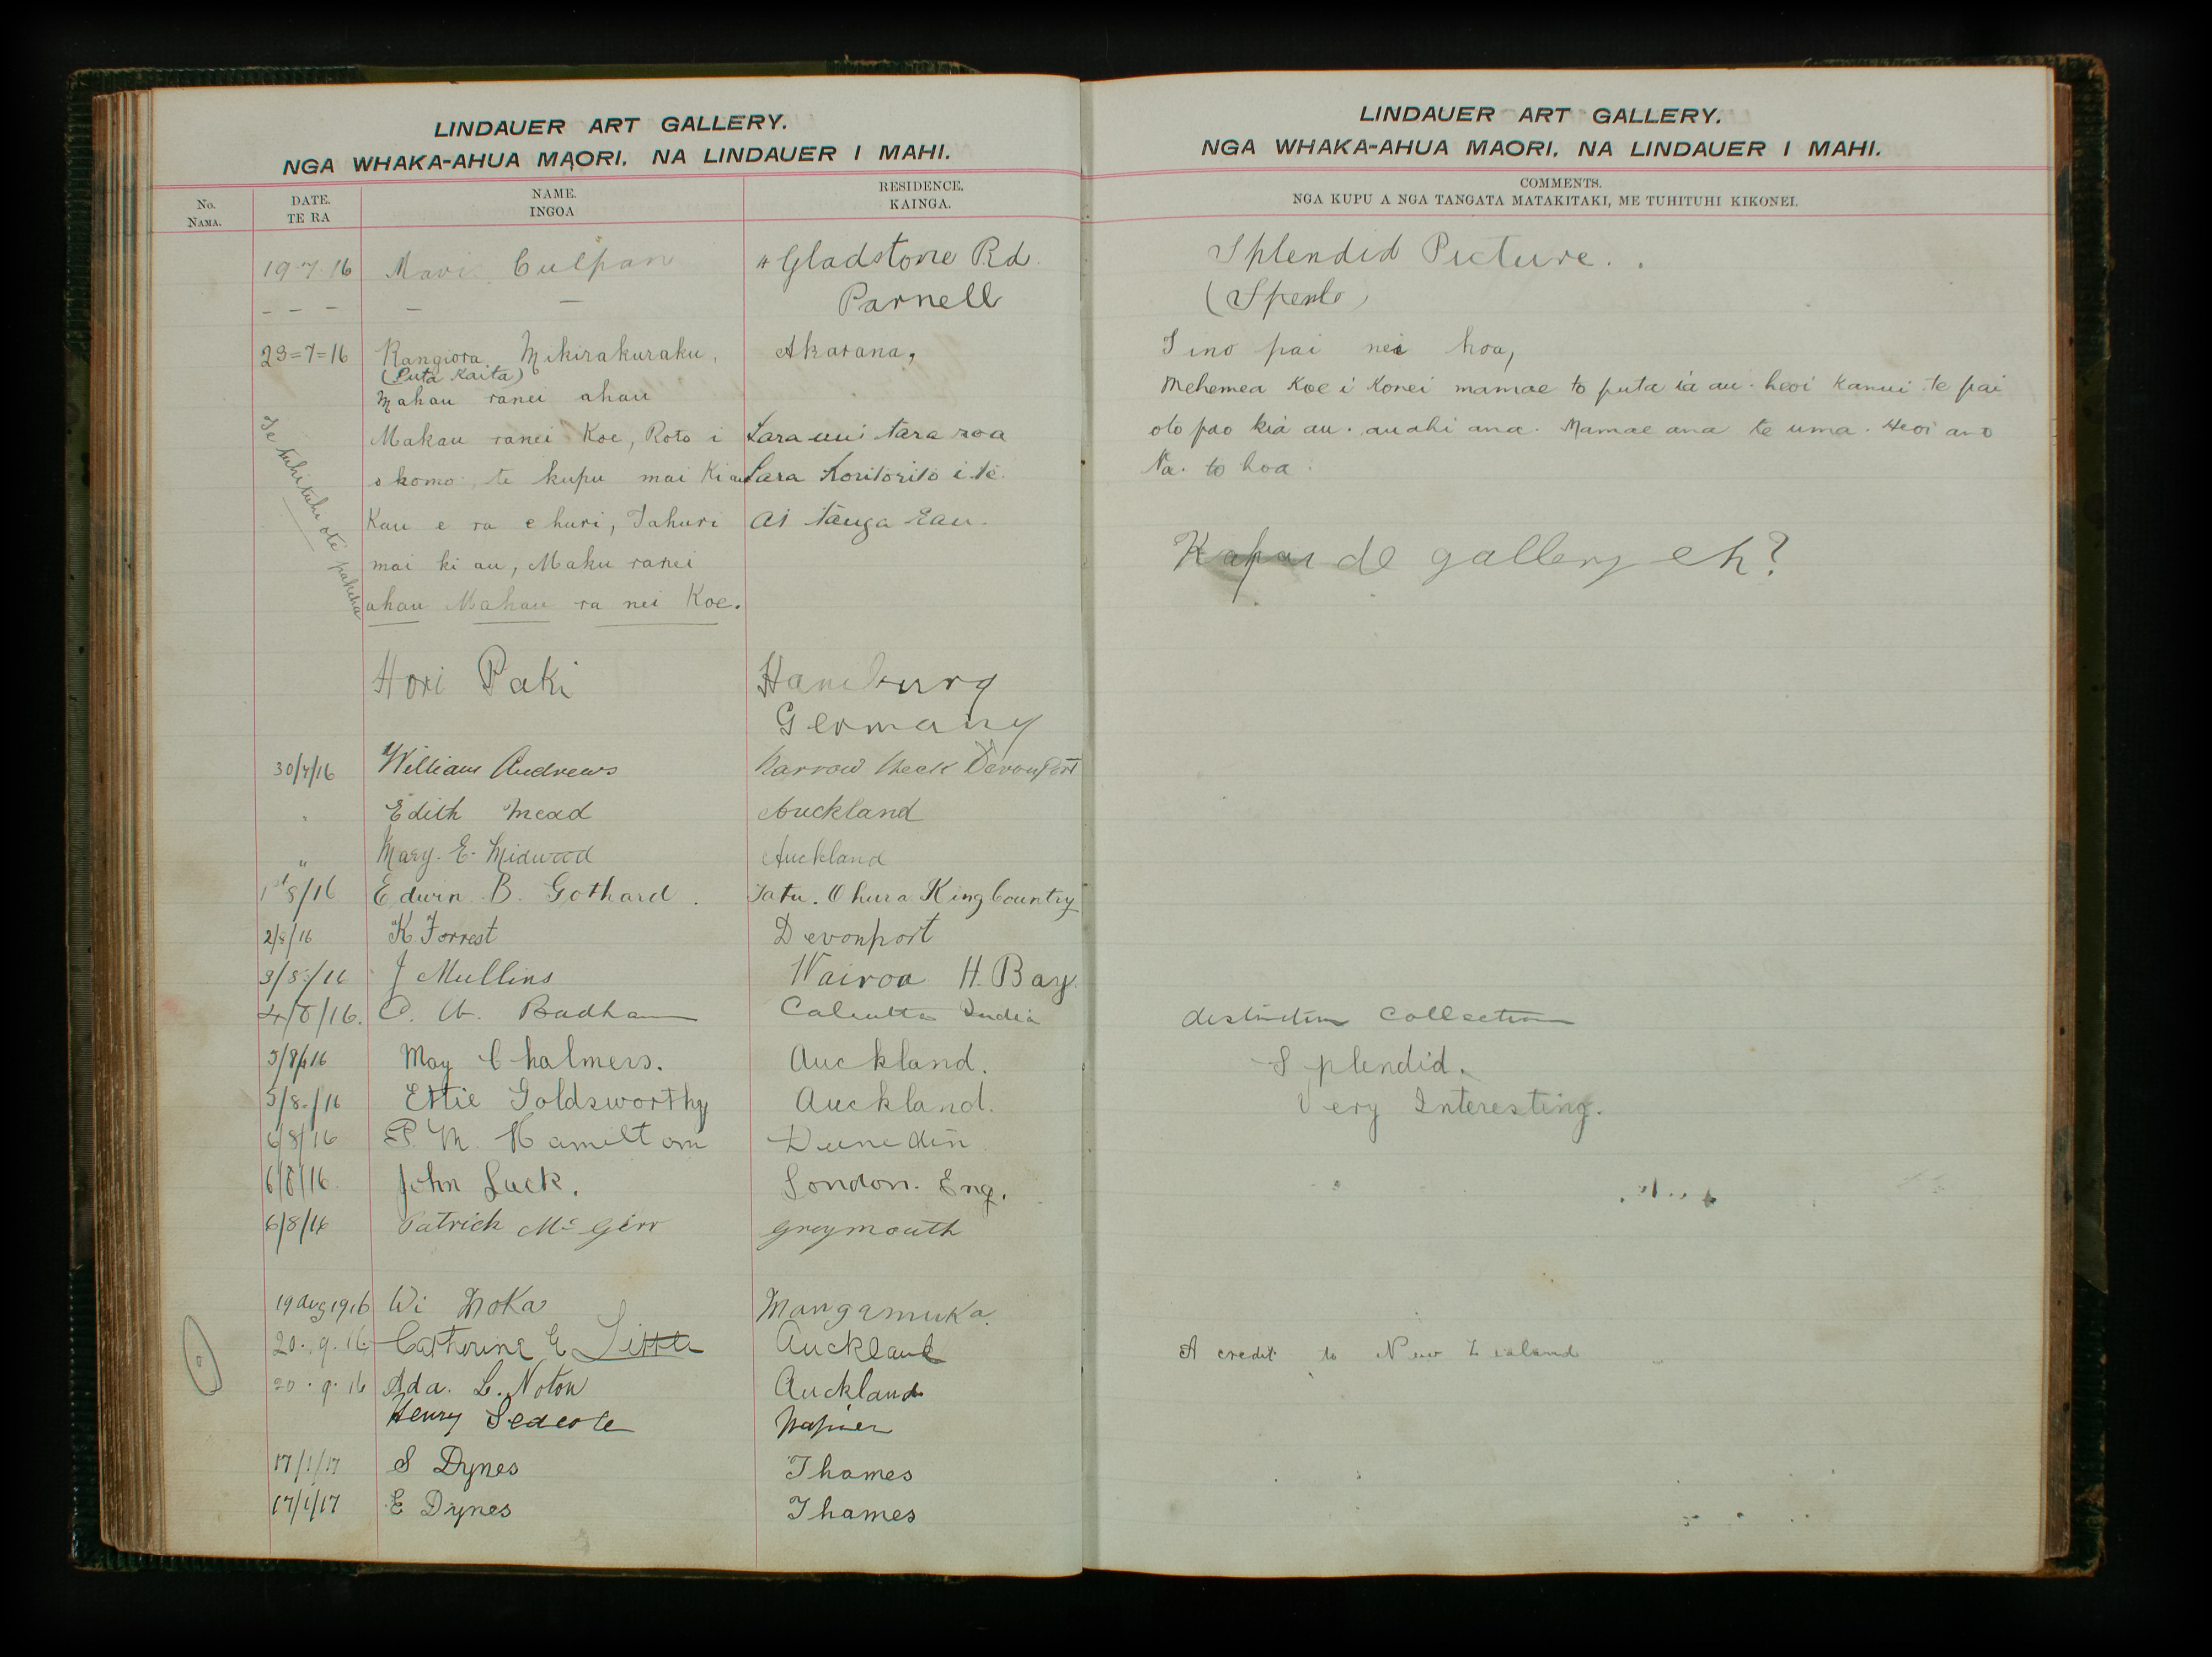 LINDAUER ART GALLERY.
NGA WHAKA-AHUA MAORI, NA LINDAUER I MAHI.
No. DATE. NAME. RESIDENCE.
NAMA. TE RA INGOA KAINGA.
19-7-16 Mavis Culpan 4 Gladstone Rd.
Parnell
23=7=16 Rangiora Mikirakuraku, Akarana,
(Puta Kaita)
Mahau ranei ahau
Makau ranei Koe, Roto i Tara nui tara roa
o komo, te kupu mai Ki au Tara i te
Kau e ra e huri, Tahuri ai
mai ki au, Maku ranei
ahau Mahau ra nei Koe.
Te tuhituhi ote pakeha
Hori Paki Hamburg
Germany
30/7/16 William Andrews Narrow Neck Devonport
" Edith Mead Auckland
" Mary. E. Midwood Auckland
1st/8/16 Edwin B. Gothard. Tatu. Ohura King Country
2/8/16 K. Forrest Devonport
3/8/16 J Mullins Wairoa H. Bay.
4/8/16. Badham Calcutta India
5/8/16 May Chalmers. Auckland.
5/8/16 Ettie Goldsworthy Auckland.
6/8/16 P. M. Hamilton Dunedin
6/8/16 John Luck. London. Eng.
6/8/16 Patrick McGirr Greymouth
19 Aug 1916 Wi Hoka Mangamuka.
20.9.16 Catherine E Little Auckland
20.9.16 Ada. L. Noton Auckland
Henry Napier
17/1/17 S Dynes Thames
17/1/17 E Dynes Thames
LINDAUER ART GALLERY.
NGA WHAKA-AHUA MAORI, NA LINDAUER I MAHI.
COMMENTS.
NGA KUPU A NGA TANGATA MATAKITAKI, ME TUHITUHI KIKONEI.
Splendid Picture..
Tino pai nei hoa,
Mehemea Koe i Konei mamae to puta ia au. heoi kanui te pai
oto pao kia au. auahi ana. Mamae ana te uma. Heoi ano
Na. to hoa.
Kapai de gallery eh?
distinctive Collection
Splendid.
Very Interesting.
A credit to New Zealand